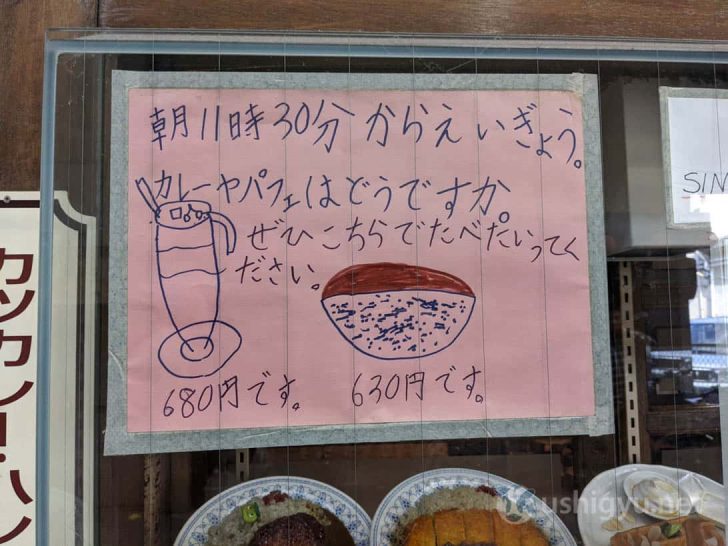 朝11時30分からえいぎょう。
カレーヤパフェはどうですか。
ぜひこちらでたべていってく
ださい。
680円です。
630円です。
カツカレー・ハン
SIN
ushigyu.net